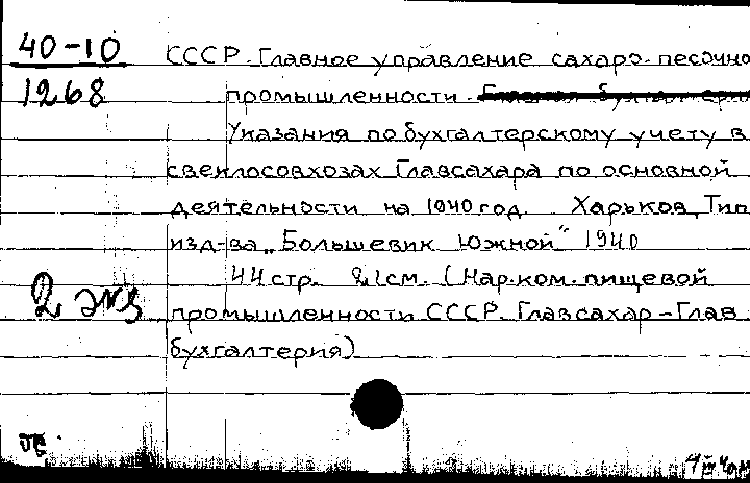 40-10
1268
СССР. Главное управление сахаро-песочно
промышленности.
Указания по бухгалтерскому учету в
свеклосовхозах Главсахара по основной
деятельности на 1940 год. Харьков, Тип
изд-ва „Большевик Южной" 1940
44 стр. 21 см. (Нар. ком. пищевой
промышленности СССР. Главсахар-Глав
бухгалтерия)
2 экз